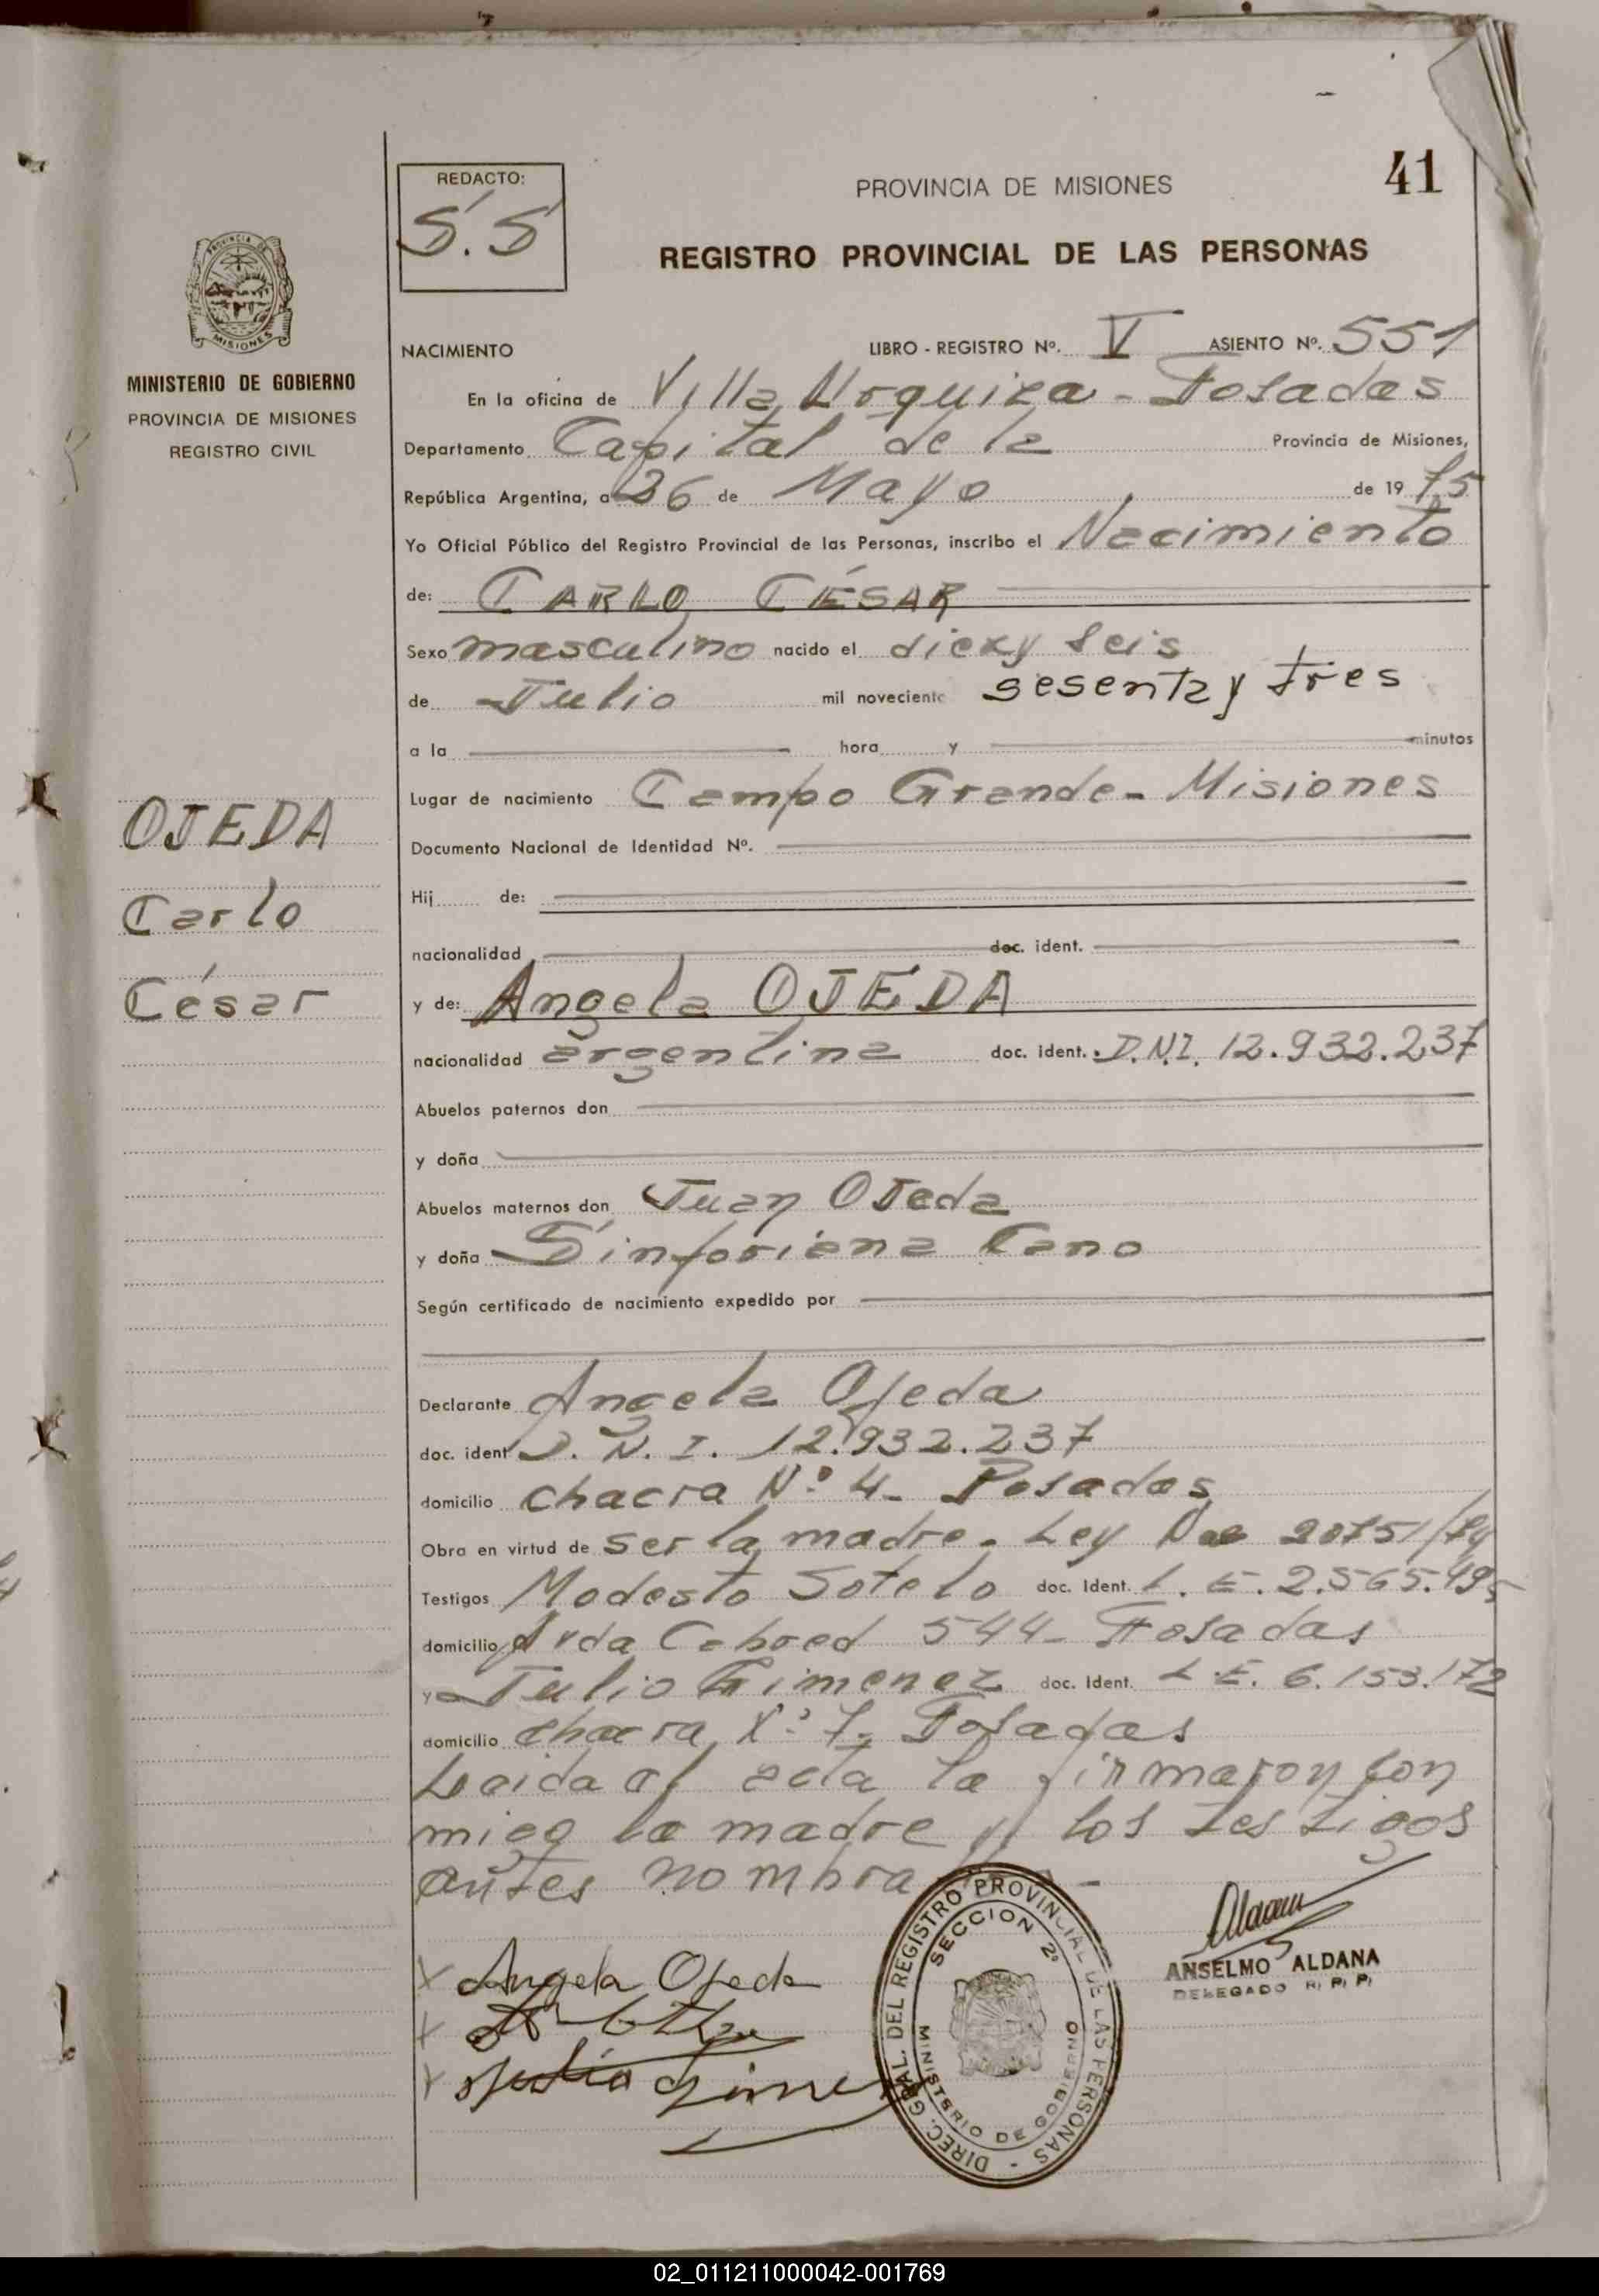 41
REDACTO:
S.S
PROVINCIA DE MISIONES
REGISTRO PROVINCIAL DE LAS PERSONAS
MINISTERIO DE GOBIERNO
PROVINCIA DE MISIONES
REGISTRO CIVIL
OJEDA
Carlo
César
NACIMIENTO LIBRO - REGISTRO Nº. V ASIENTO Nº. 551
En la oficina de Villa Urquiza - Posadas
Departamento Capital de la Provincia de Misiones,
República Argentina, a 26 de Mayo de 1975
Yo Oficial Público del Registro Provincial de las Personas, inscribo el Nacimiento
de: CARLO CÉSAR
Sexo masculino nacido el diez y seis
de Julio mil noveciento sesenta y tres
a la hora y minutos
Lugar de nacimiento Campo Grande - Misiones
Documento Nacional de Identidad Nº.
Hij de:
nacionalidad doc. ident.
y de: Angela OJEDA
nacionalidad argentina doc. ident. D.N.I. 12.932.237
Abuelos paternos don
y doña
Abuelos maternos don Juan Ojeda
y doña Sinforiana Cano
Según certificado de nacimiento expedido por
Declarante Angela Ojeda
doc. ident D.N.I. 12.932.237
domicilio chacra Nº 4 - Posadas
Obra en virtud de ser la madre - Ley 20751/74
Testigos Modesto Sotelo doc. Ident. L.E. 2.565.495
domicilio Avda 544 - Posadas
y Julio Gimenez doc. Ident. L.E. 6.153.172
domicilio chacra Nº 7 - Posadas
Leida el acta la firmaron con
migo la madre y los testigos
antes nombra
Angela Ojeda
Julio Gimenez
DIREC. GRAL. DEL REGISTRO PROVINCIAL DE LAS PERSONAS -
SECCION 2º
MINISTERIO DE GOBIERNO
ANSELMO ALDANA
DELEGADO R. P. P.
02_011211000042-001769